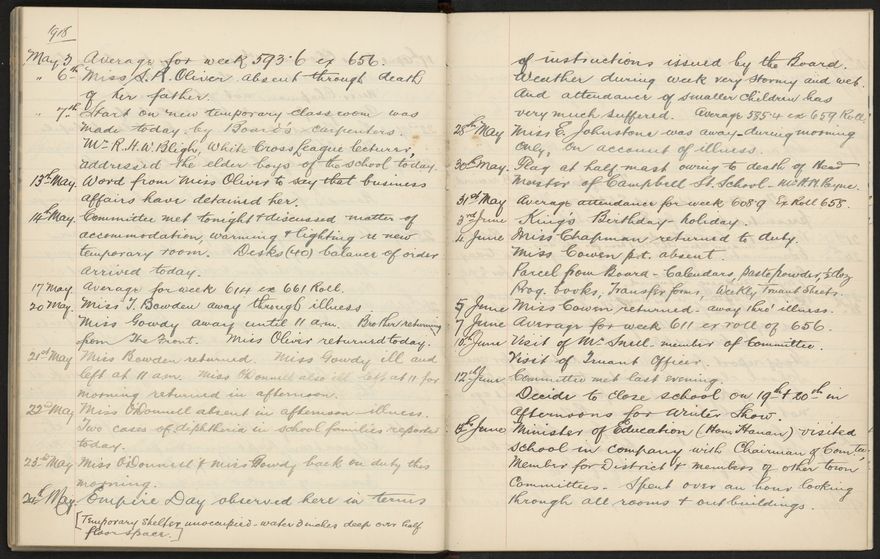 1918
May 3 Average for week 593·6 ex 656.
" 6th Miss S. R. Oliver absent through death
of her father.
" 7th Start on new temporary class room was
made today by Board's carpenters.
Mr R. H. W. Bligh, White Cross League lecturer,
addressed the elder boys of the school today.
13th May. Word from Miss Oliver to say that business
affairs have detained her.
14th May. Committee met tonight & discussed matter of
accommodation, warming & lighting re new
temporary room. Desks (40) balance of order
arrived today.
17 May. Average for week 614 ex 661 Roll.
20 May. Miss T. Bowden away through illness
Miss Gowdy away until 11 am. Brother returning
from The Front. Miss Oliver returned today.
21st May Miss Bowden returned. Miss Gowdy ill and
left at 11 am. Miss O'Donnell also ill left at 11 for
morning returned in afternoon.
22nd May Miss O'Donnell absent in afternoon - illness.
Two cases of diphtheria in school families reported
today.
23rd May Miss O'Donnell & Miss Gowdy back on duty this
morning.
24th May. Empire Day observed here in terms
[Temporary shelter unoccupied - water 3 inches deep over half
floor space.]
of instructions issued by the Board.
Weather during week very stormy and wet.
And attendance of smaller children has
very much suffered. Average 535·4 ex 659 Roll.
28th May Miss E. Johnstone was away during morning
only, on account of illness.
30th May. Flag at half mast owing to death of Head
Master of Campbell St. School - Mr Payne.
31st May Average attendance for week 608·9 Ex Roll 658.
3rd June King's Birthday holiday.
4 June Miss Chapman returned to duty.
Miss Cowen p.t. absent.
Parcel from Board - Calendars, paste powder,
Prog. books, Transfer forms, Weekly Truant Sheets.
5 June Miss Cowen returned. away thro' illness.
7 June Average for week 611 ex roll of 656.
10th June Visit of Mr Snell member of Committee.
Visit of Truant Officer.
12th June Committee met last evening.
Decide to close school on 19th & 20th in
afternoons for Winter Show.
Minister of Education (Hon. Hanan) visited
school in company with Chairman of Com'tee,
Member for District & members of other town
Committees. Spent over an hour looking
through all rooms & outbuildings.